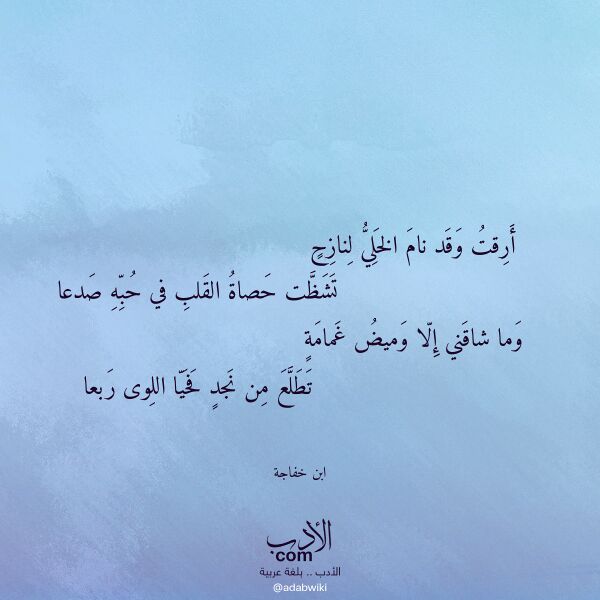 أَرِقتُ وَقَد نامَ الخَلِيُّ لِنازِحٍ
تَشَظَّت حَصاةُ القَلبِ في حُبِّهِ صَدعا
وَما شاقَني إِلّا وَميضُ غَمامَةٍ
تَطَلَّعَ مِن نَجدٍ فَحَيّا اللِوى رَبعا
ابن خفاجة
الأدب
com
الأدب .. بلغة عربية
@adabwiki